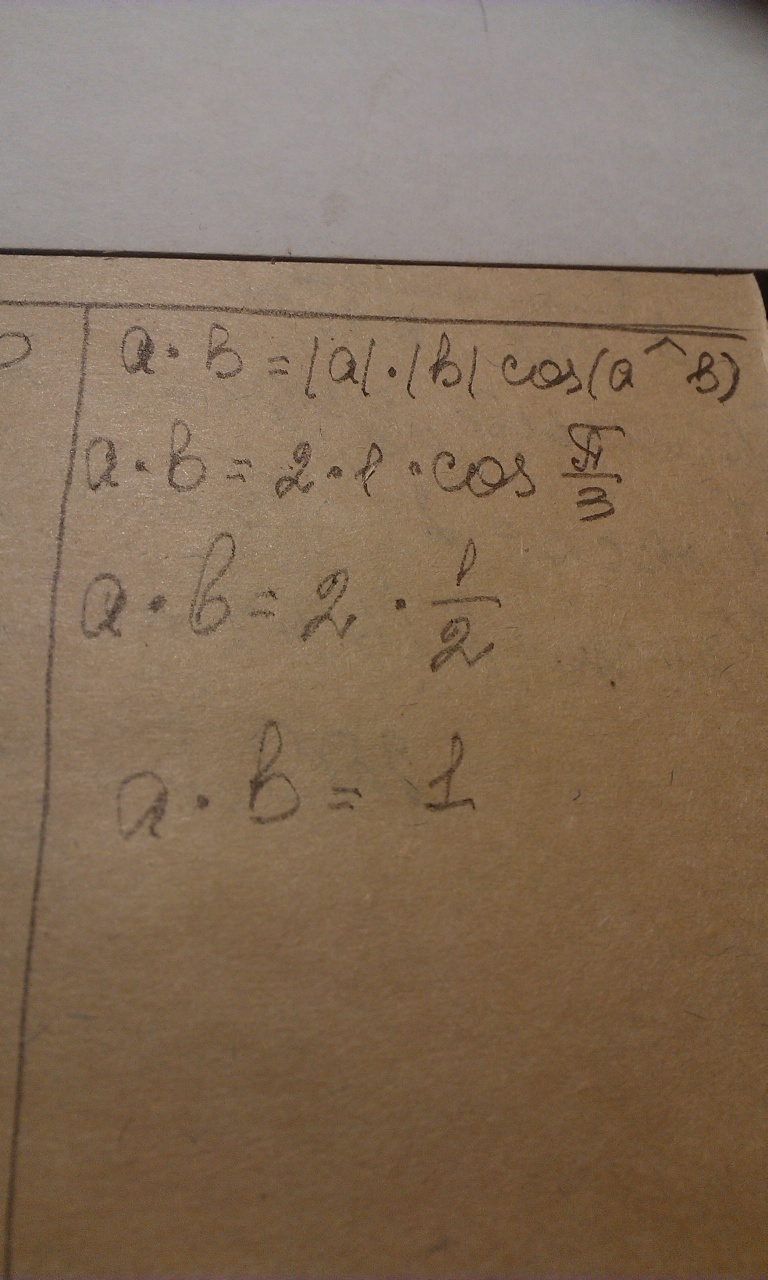 a · b = |a| · |b| cos(a ^ b)
a · b = 2 · 1 · cos π/3
a · b = 2 · 1/2
a · b = 1